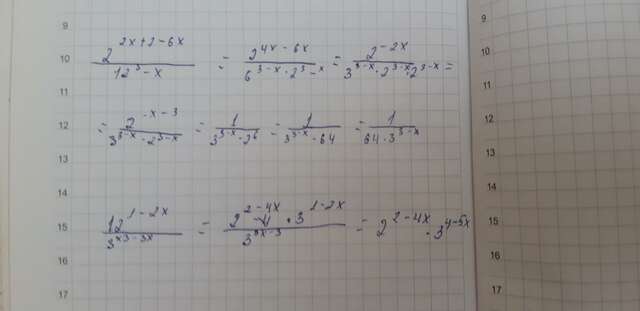 9 9
10 2^(2x+2-6x) / 12^(3-x) = 2^(4x-6x) / 6^(3-x)·2^(3-x) = 2^(-2x) / 3^(3-x)·2^(3-x)·2^(3-x) = 10
11 11
12 = 2^(-x-3) / 3^(3-x)·2^(3-x) = 1 / 3^(3-x)·2^6 = 1 / 3^(3-x)·64 = 1 / 64·3^(3-x) 12
13 13
14 14
15 12^(1-2x) / 3^(x3-3x) = 2^(2-4x)·3^(1-2x) / 3^(3x-3) = 2^(2-4x)·3^(4-5x) 15
16 16
17 17